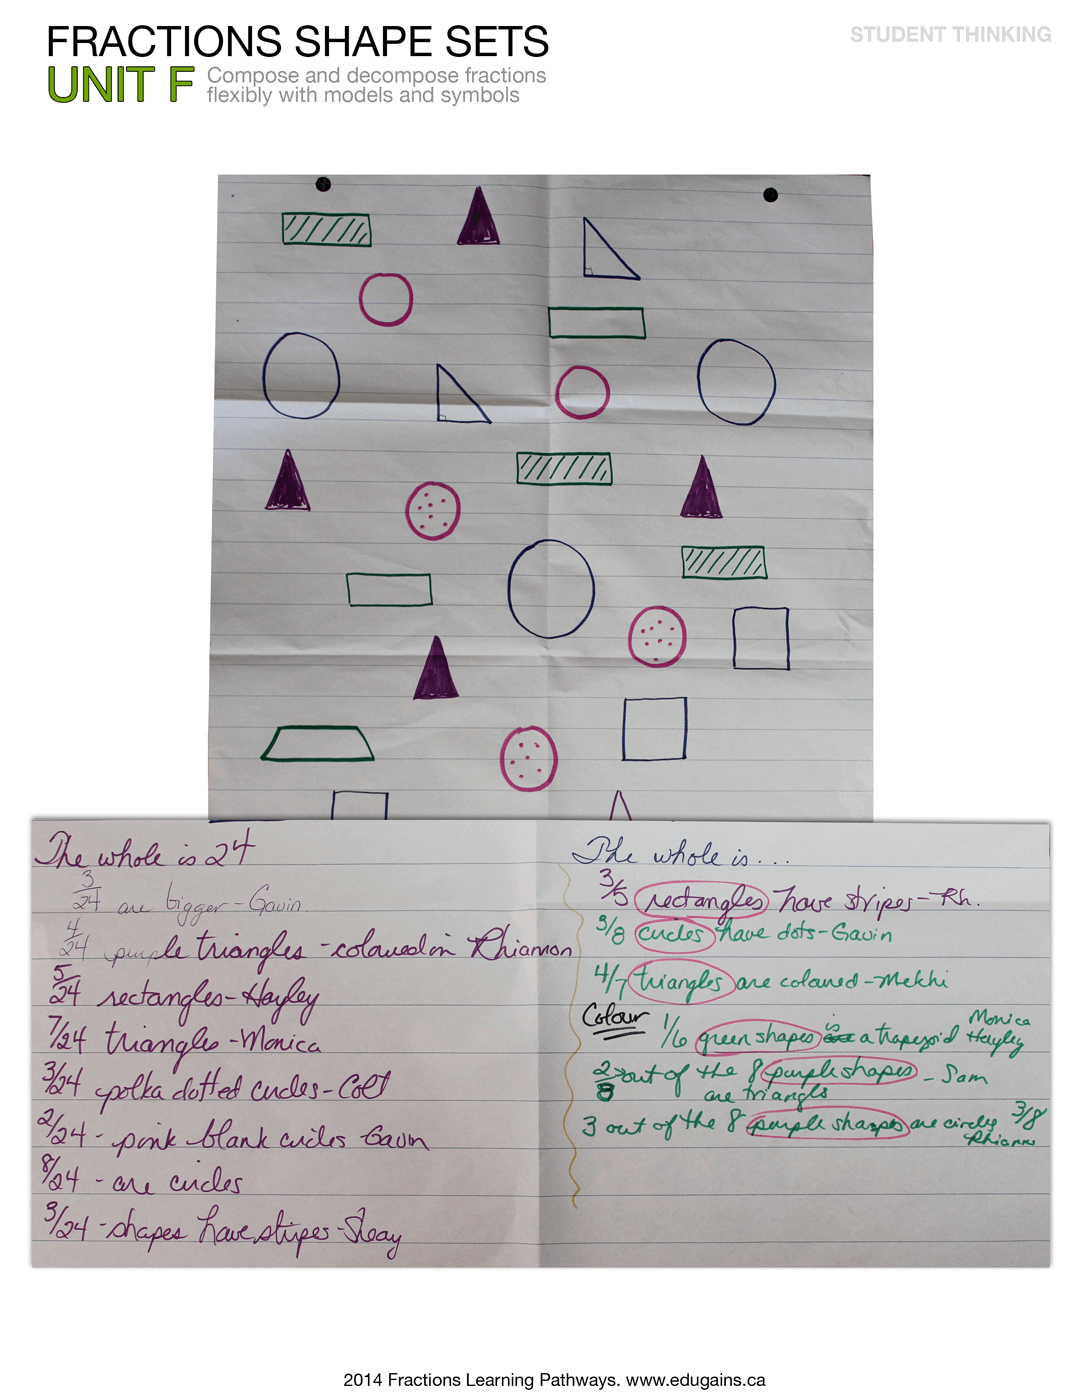 FRACTIONS SHAPE SETS
STUDENT THINKING
UNIT F
Compose and decompose fractions
flexibly with models and symbols
The whole is 24
3/24 are bigger - Gavin
4/24 purple triangles - coloured in Rhiannon
5/24 rectangles - Hayley
7/24 triangles - Monica
3/24 polka dotted circles - Colt
2/24 - pink blank circles - Gavin
8/24 - are circles
3/24 - shapes have stripes - Shay
The whole is...
3/5 rectangles have stripes - Rh.
3/8 circles have dots - Gavin
4/7 triangles are coloured - Mekhi
Colour
1/6 green shapes is a trapezoid Monica Hayley
2/8 → out of the 8 purple shapes - Sam
are triangles
3 out of the 8 purple shapes are circles 3/8
Rhiann
2014 Fractions Learning Pathways. www.edugains.ca